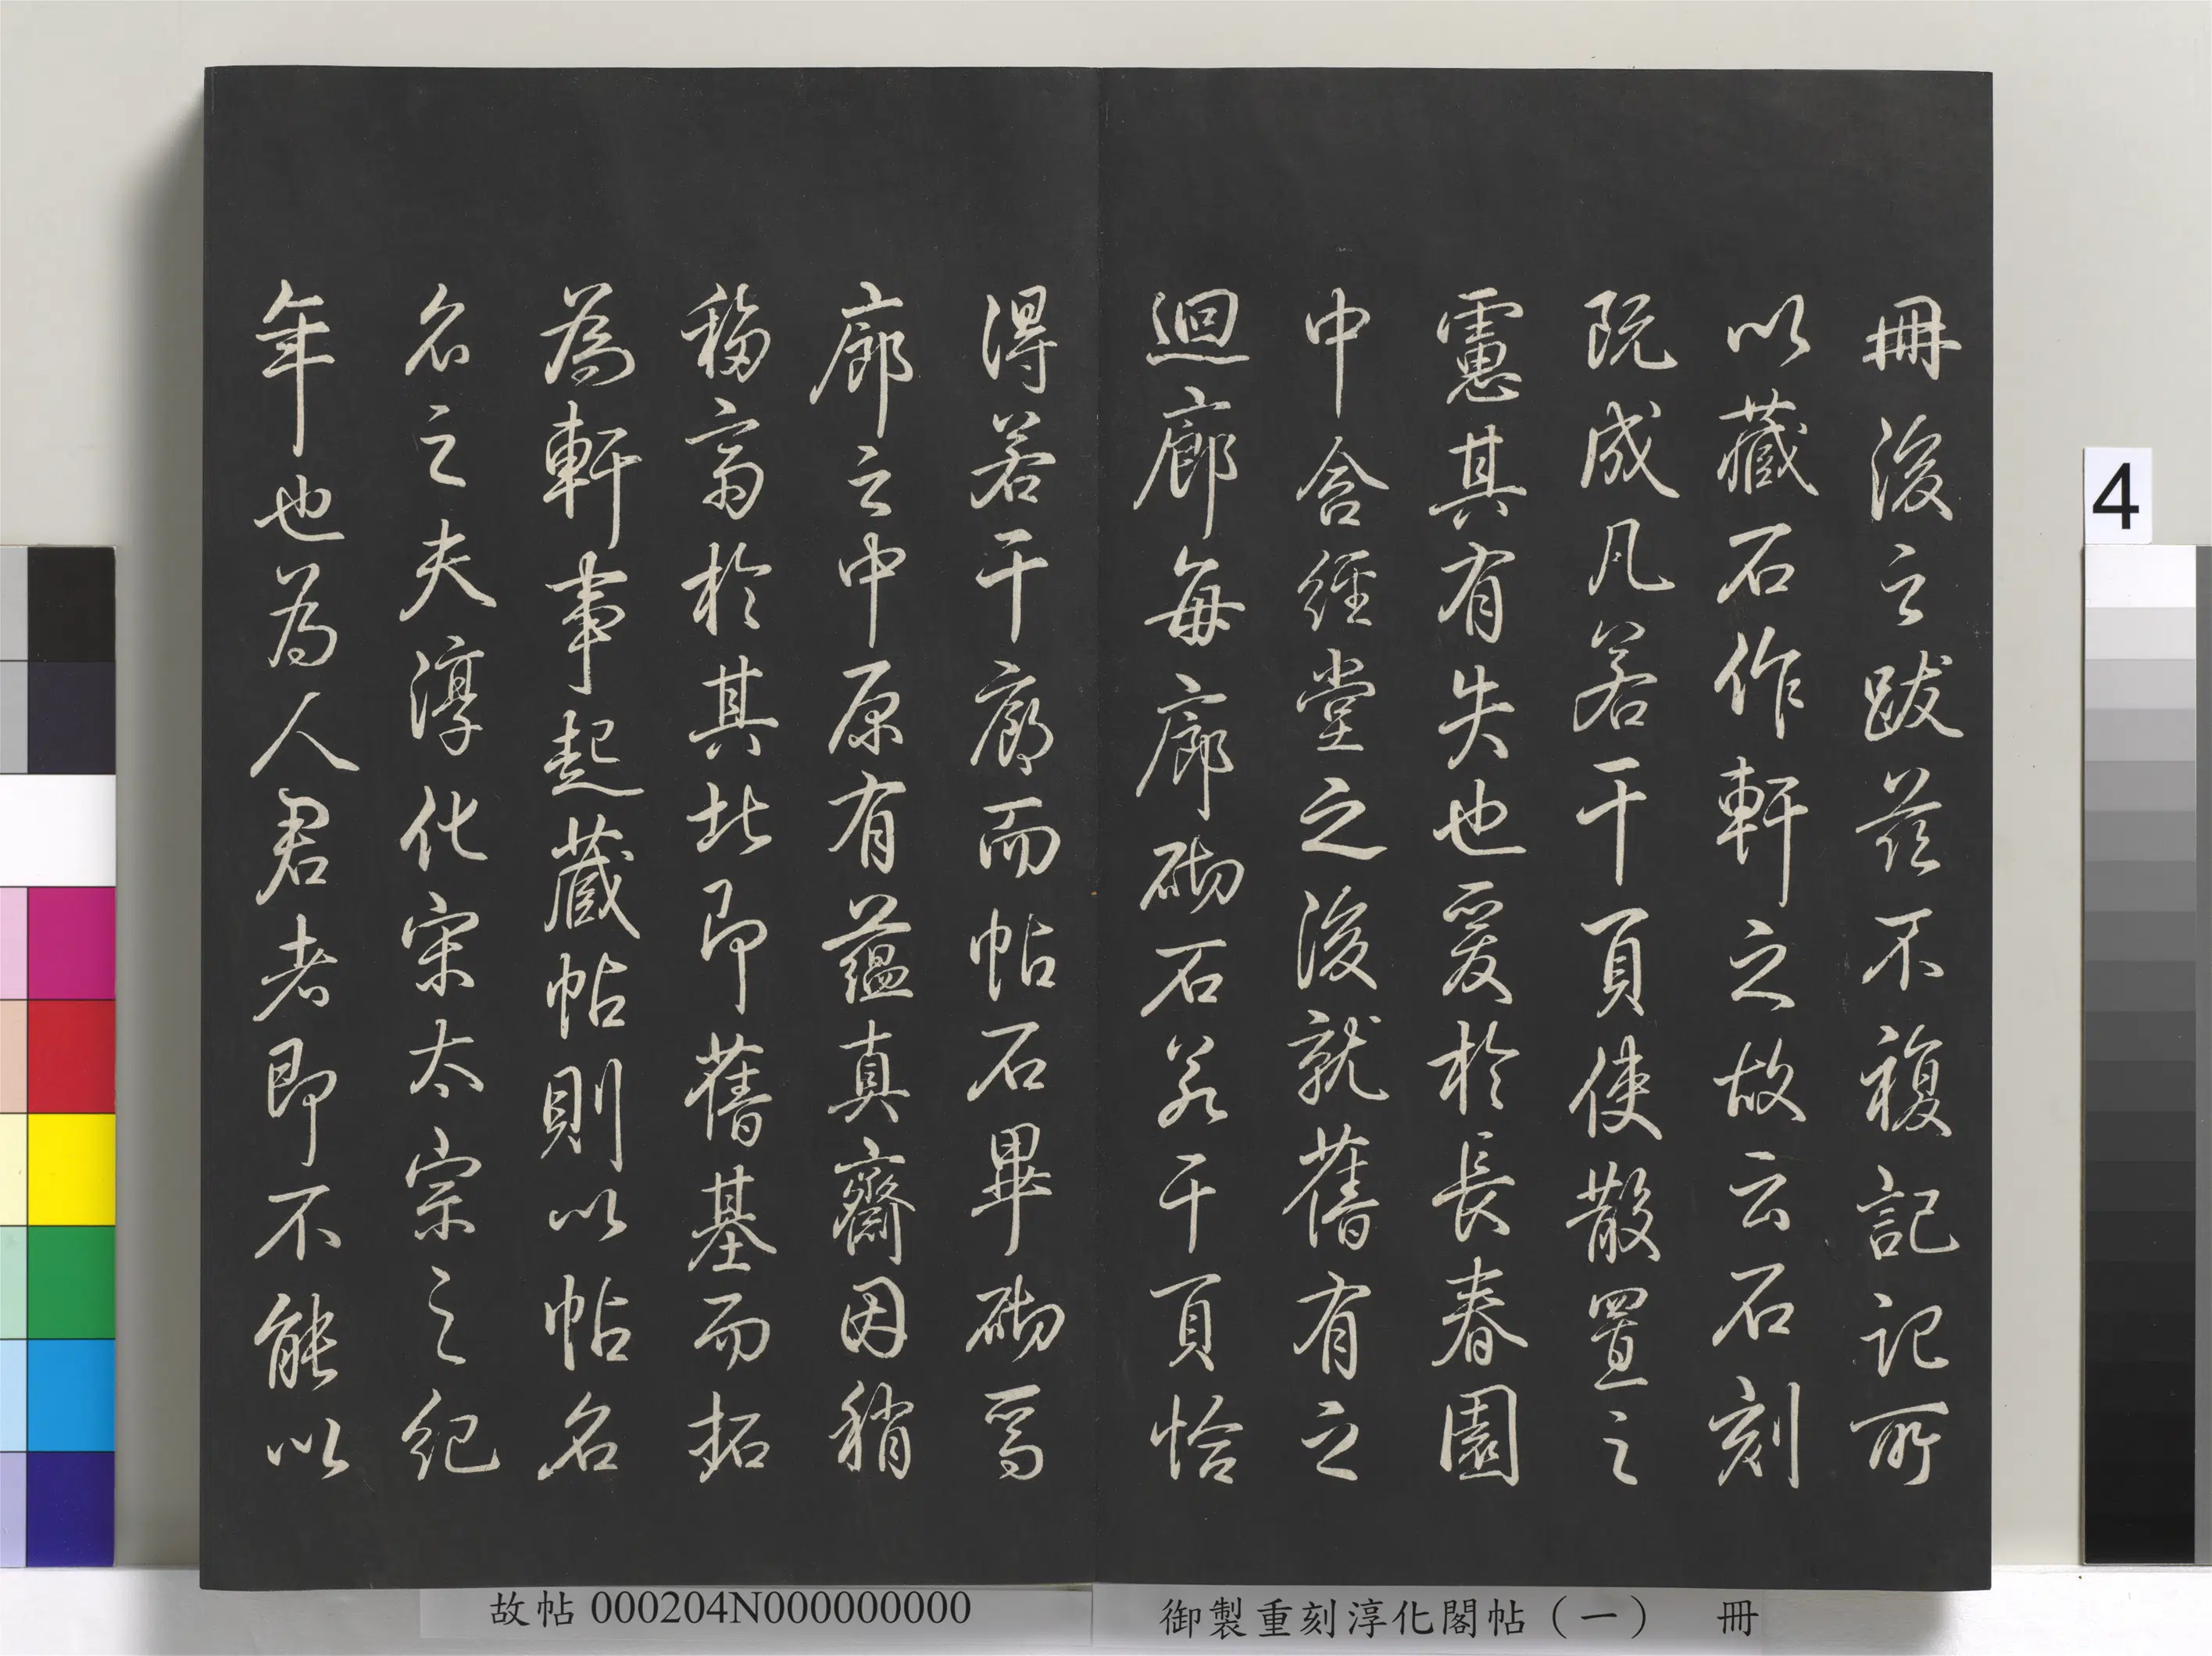 冊後之跋茲不複記記所
以藏石作軒之故云石刻
既成凡若干頁使散置之
慮其有失也爰於長春園
中含經堂之後就舊有之
迴廊每廊砌石若干頁恰
得若干廊而帖石畢砌焉
廊之中原有蘊真齋因稍
移齋於其北即舊基而拓
為軒事起藏帖則以帖名
名之夫淳化宋太宗之紀
年也為人君者即不能以
4
故帖 000204N000000000
御製重刻淳化閣帖（一） 冊